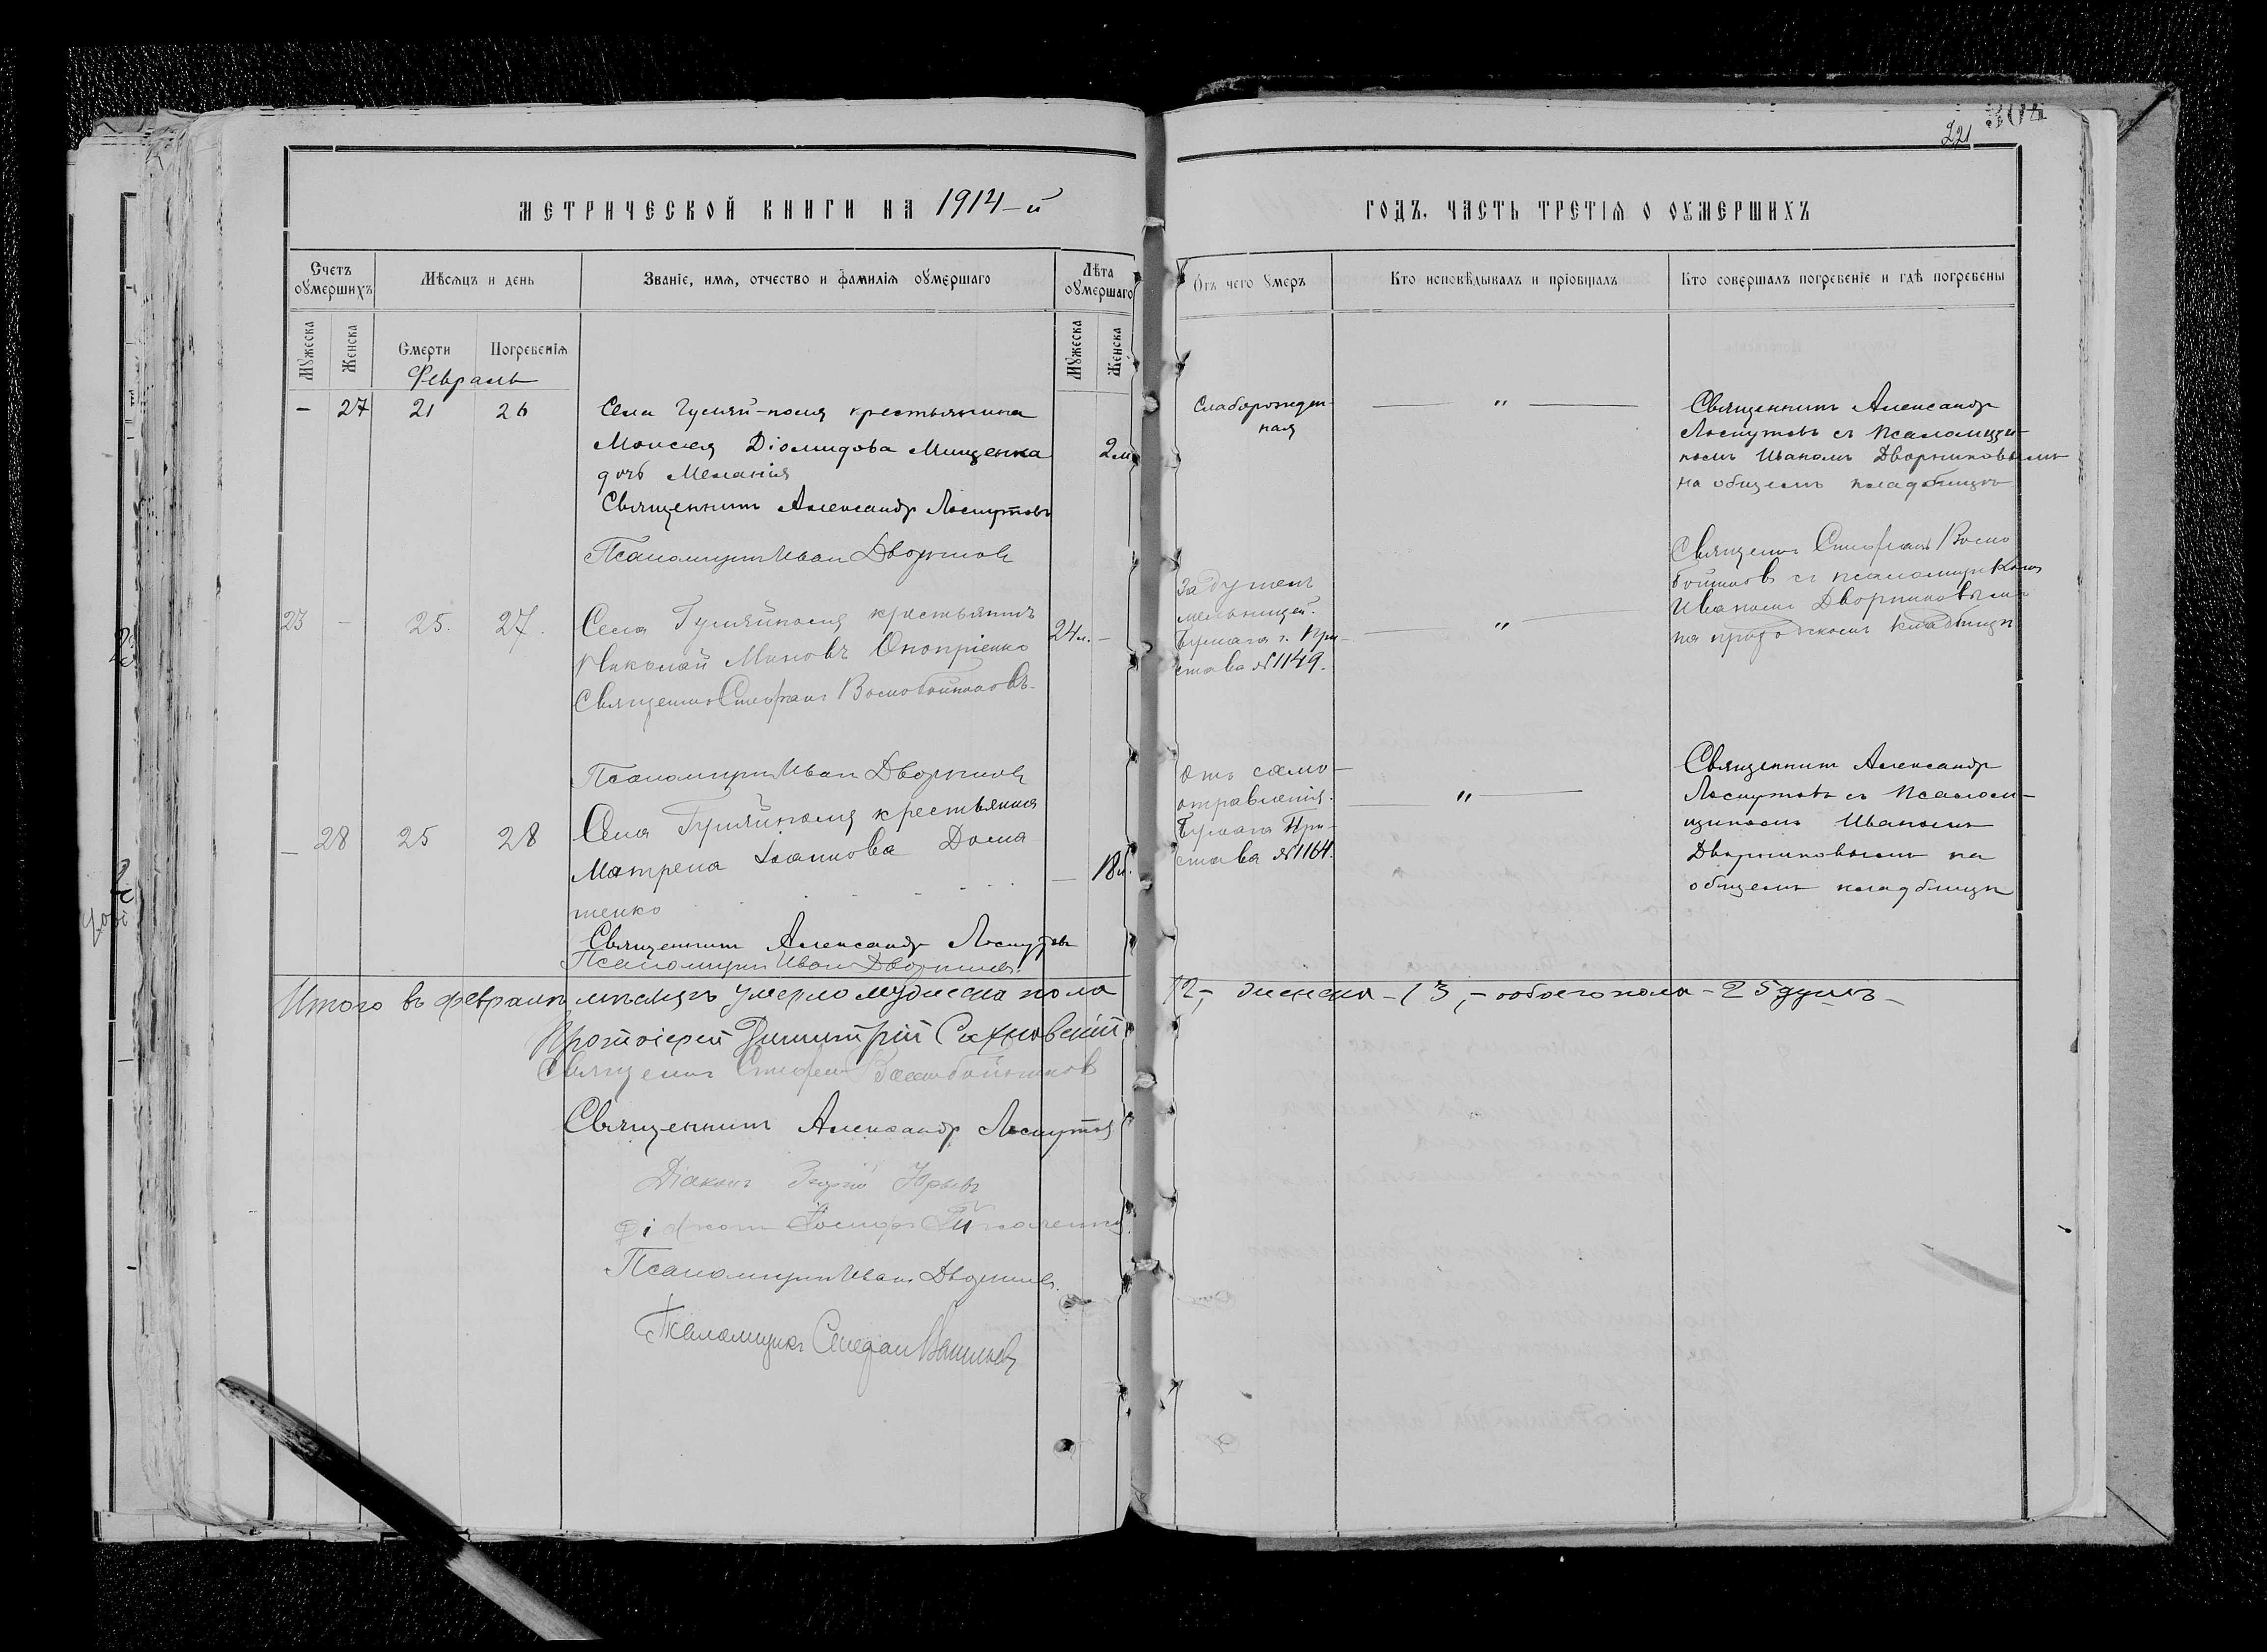 304
221
МЕТРИЧЕСКОЙ КНИГИ НА 1914-й
ГОДЪ, ЧАСТЬ ТРЕТІЯ О ОУМЕРШИХЪ
Счетъ оумершихъ
Мѣсяцъ и день
Званіе, имя, отчество и фамилія оумершаго
Лѣта оумершаго
Отъ чего умеръ
Кто исповѣдывалъ и пріобщалъ
Кто совершалъ погребеніе и гдѣ погребены
Мужеска
Женска
Смерти
Погребенія
Мужеска
Женска
Февраль
— 27 21 26
Села Гуляй-поля крестьянина
Моисея Діомидова Мищенка
дочь Меланія
2м
Священникъ Александр Лоскутовъ
Псаломщик Иван Дворников
Слаборожден-
ная
"
Священникъ Александр
Лоскутовъ съ псаломщи-
комъ Иваномъ Дворниковымъ
на общемъ кладбищѣ
23 — 25. 27.
Села Гуляйполя крестьянинъ
Николай Миновъ Оноприенко
24л. —
Священник Стефанъ Воскобойниковъ
Псаломщик Иван Дворников
Задушенъ
мельницей.
Бумага г. При-
става №1149.
"
Священик Стефанъ Воско
бойников съ псаломщиком
Иваномъ Дворниковымъ
на кладбищѣ
— 28 25 28
Села Гуляйполя крестьянка
Матрена Іоаннова Дома
тенко
— 18л.
Священникъ Александр Лоскутовъ
Псаломщик Иван Дворников
Отъ само-
отравленія.
Бумага При-
става №1164.
"
Священникъ Александр
Лоскутовъ съ псалом-
щикомъ Иваномъ
Дворниковымъ на
общемъ кладбищѣ
Итого въ февралѣ мѣсяцѣ умерло мужеска пола 12,- женска - 13,- обоего пола - 25 душъ -
Протоіерей Димитрій Сахновскій
Священик Стефан Воскобойников
Священникъ Александр Лоскутов
Діаконъ Юрьевъ
Псаломщик Иван Дворников
Псаломщикъ